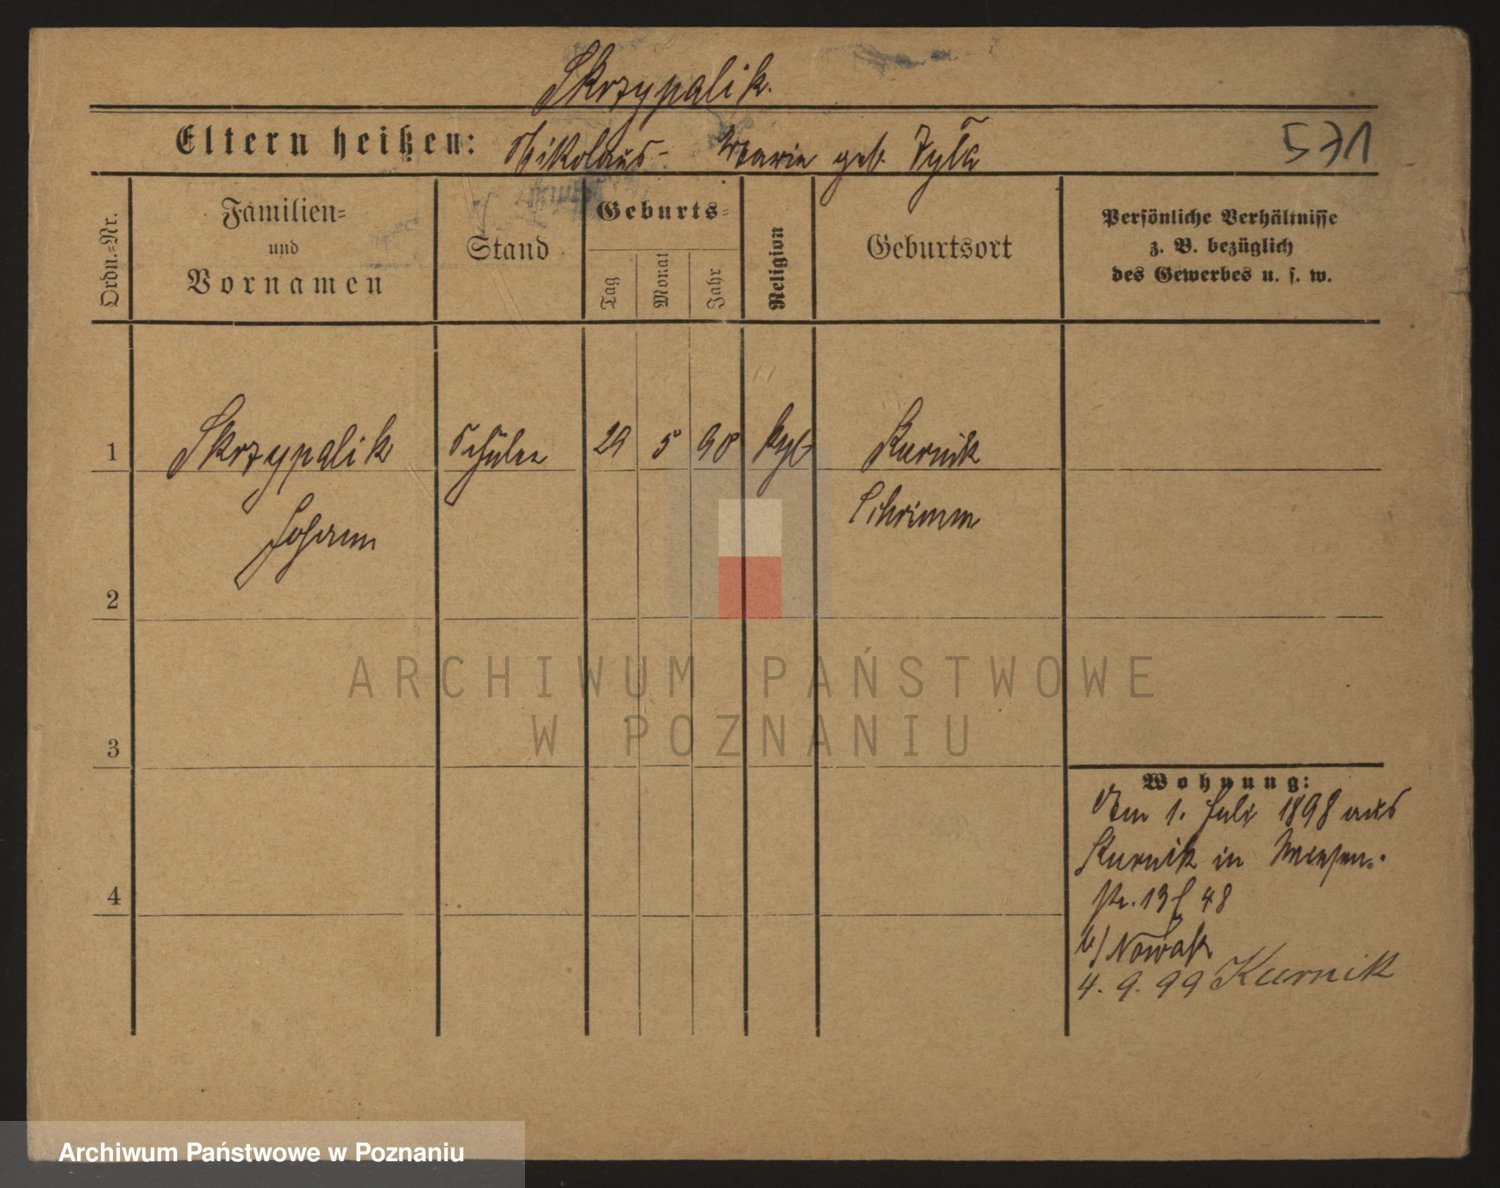 Skrzypalik.
Eltern heißen: Nikolaus - Maria geb. Tyla
571
Ordn.-Nr.
Familien-
und
Vornamen
Stand
Geburts-
Tag
Monat
Jahr
Religion
Geburtsort
Persönliche Verhältnisse
z. B. bezüglich
des Gewerbes u. s. w.
1 Skrzypalik Schüler 29 5 90 Kurnik
Johann Schrimm
2
3
4
ARCHIWUM PAŃSTWOWE
W POZNANIU
Wohnung:
Am 1. Juli 1898 aus
Kurnik in Wiesen-
str. 13 48
b/ Nowak
4. 9. 99 Kurnik
Archiwum Państwowe w Poznaniu